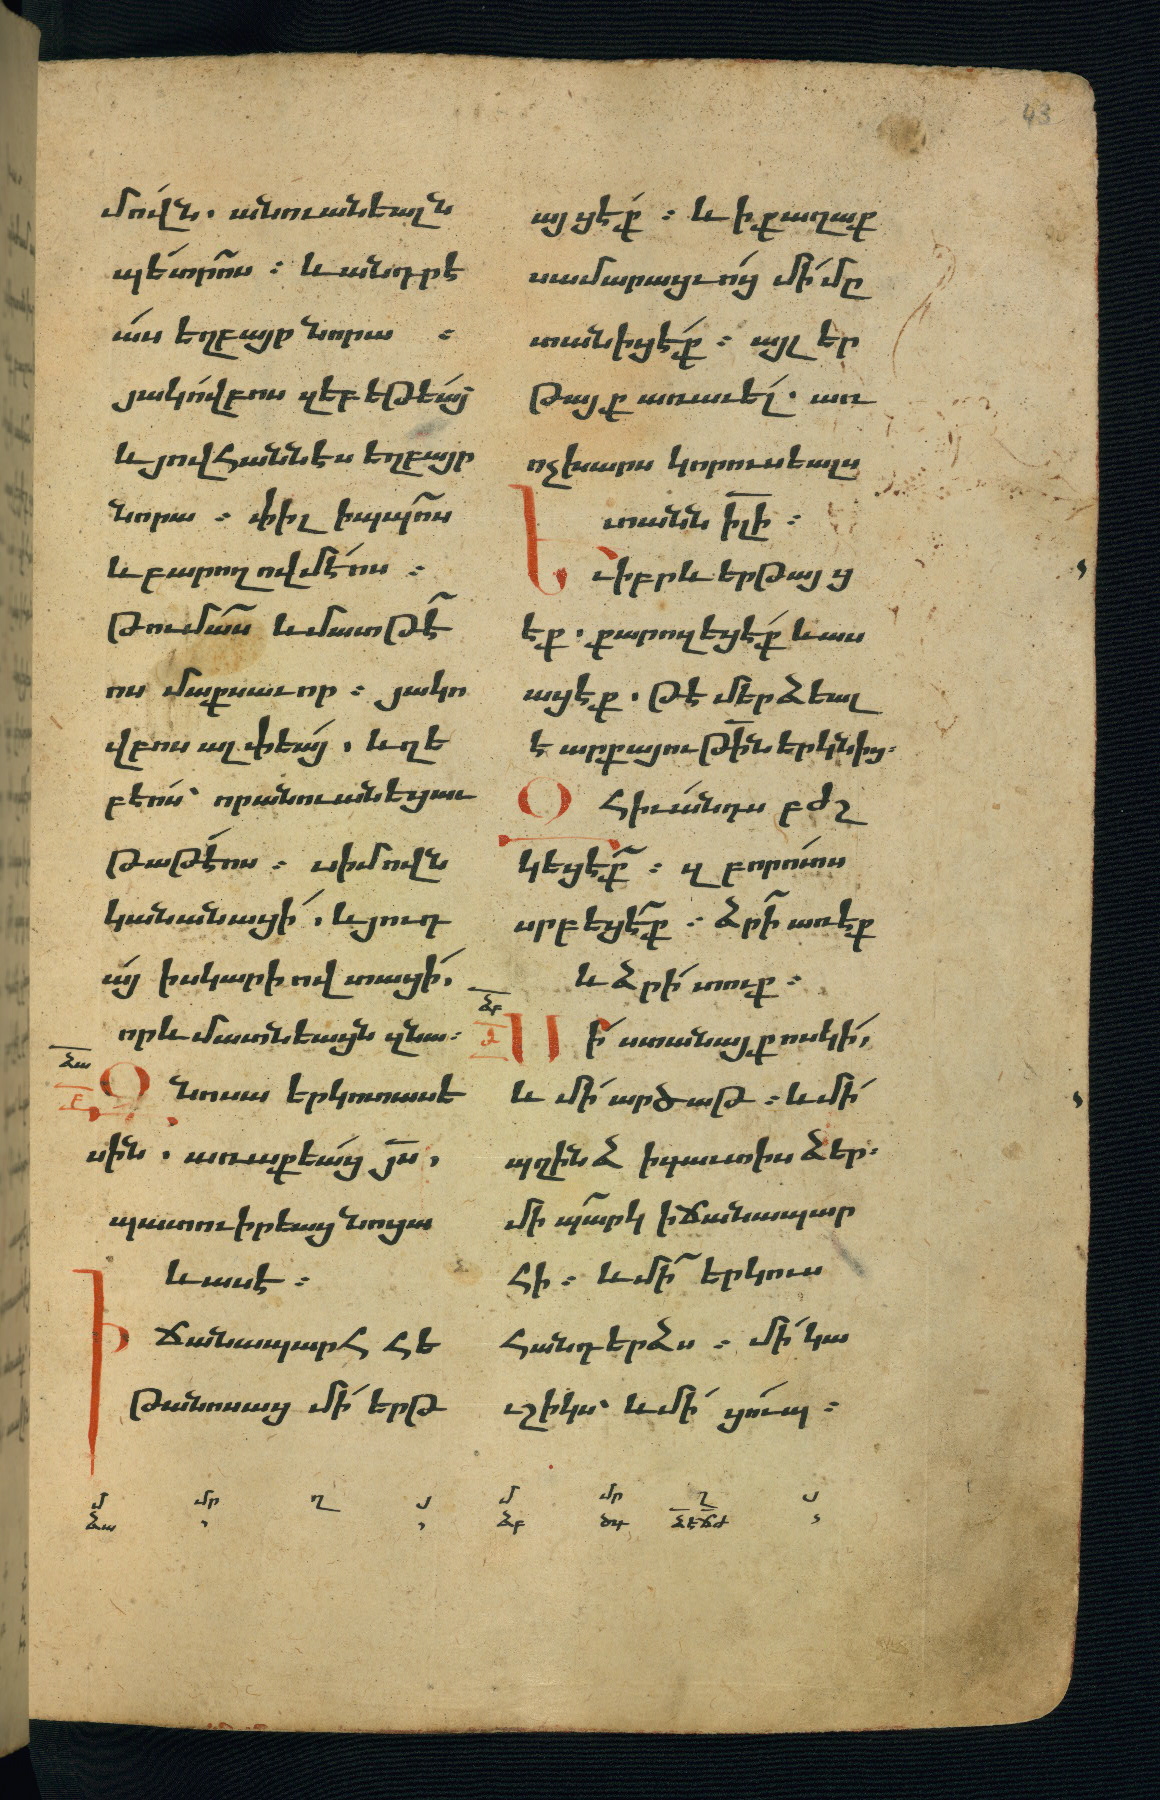 43
մովն. անուանեալն
պետրոս : և անդրէ
աս եղբայր նորա :
յակովբոս զեբեթեայ
և յովհաննէս եղբայր
նորա : փիլիպպոս
և բարողովմէոս :
թումաս և մատթէ
ոս մաքսաւոր : յակո
վբոս աղփեայ, և ղե
բէոս՝ որ անուանեցաւ
թաթէոս : սիմովն
կանանացի, և յուդ
այ իսկարիովտացի,
որ և մատնեացն զնա :
ձա
բ
Զնոսա երկոտասե
սին, առաքեաց յս,
պատուիրեաց նոցա
և ասէ :
Ի ճանապարհ հե
թանոսաց մի երթ
այցէք : և ի քաղաք
սամարացւոց մի մը
տանիցէք : այլ եր
թայք առաւել. առ
ոչխարս կորուսեալս
տանն իլի :
Եւ իբրև երթայց
էք. քարոզեցէք և աս
ացէք. թէ մերձեալ
է արքայութին երկնից.
Զհիւանդս բժշ
կեցէք : զբորոտս
սրբեցէք : ձրի առէք
և ձրի տուք :
ձբ
զ
Մի ստանայք ոսկի,
և մի արծաթ : և մի
պղինձ ի գաւտիս ձեր.
մի պարկ ի ճանապար
հի : և մի երկուս
հանդերձս : մի կա
ւշիկս՝ և մի ցուպ :
մ մր ղ յ մ մր ղ յ
ձա , , ձբ ծդ ձէ ճժ ,